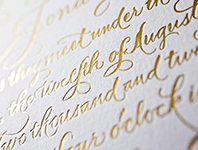 they meet under the
the twelfth of August
two thousand and twe
four o'clock i